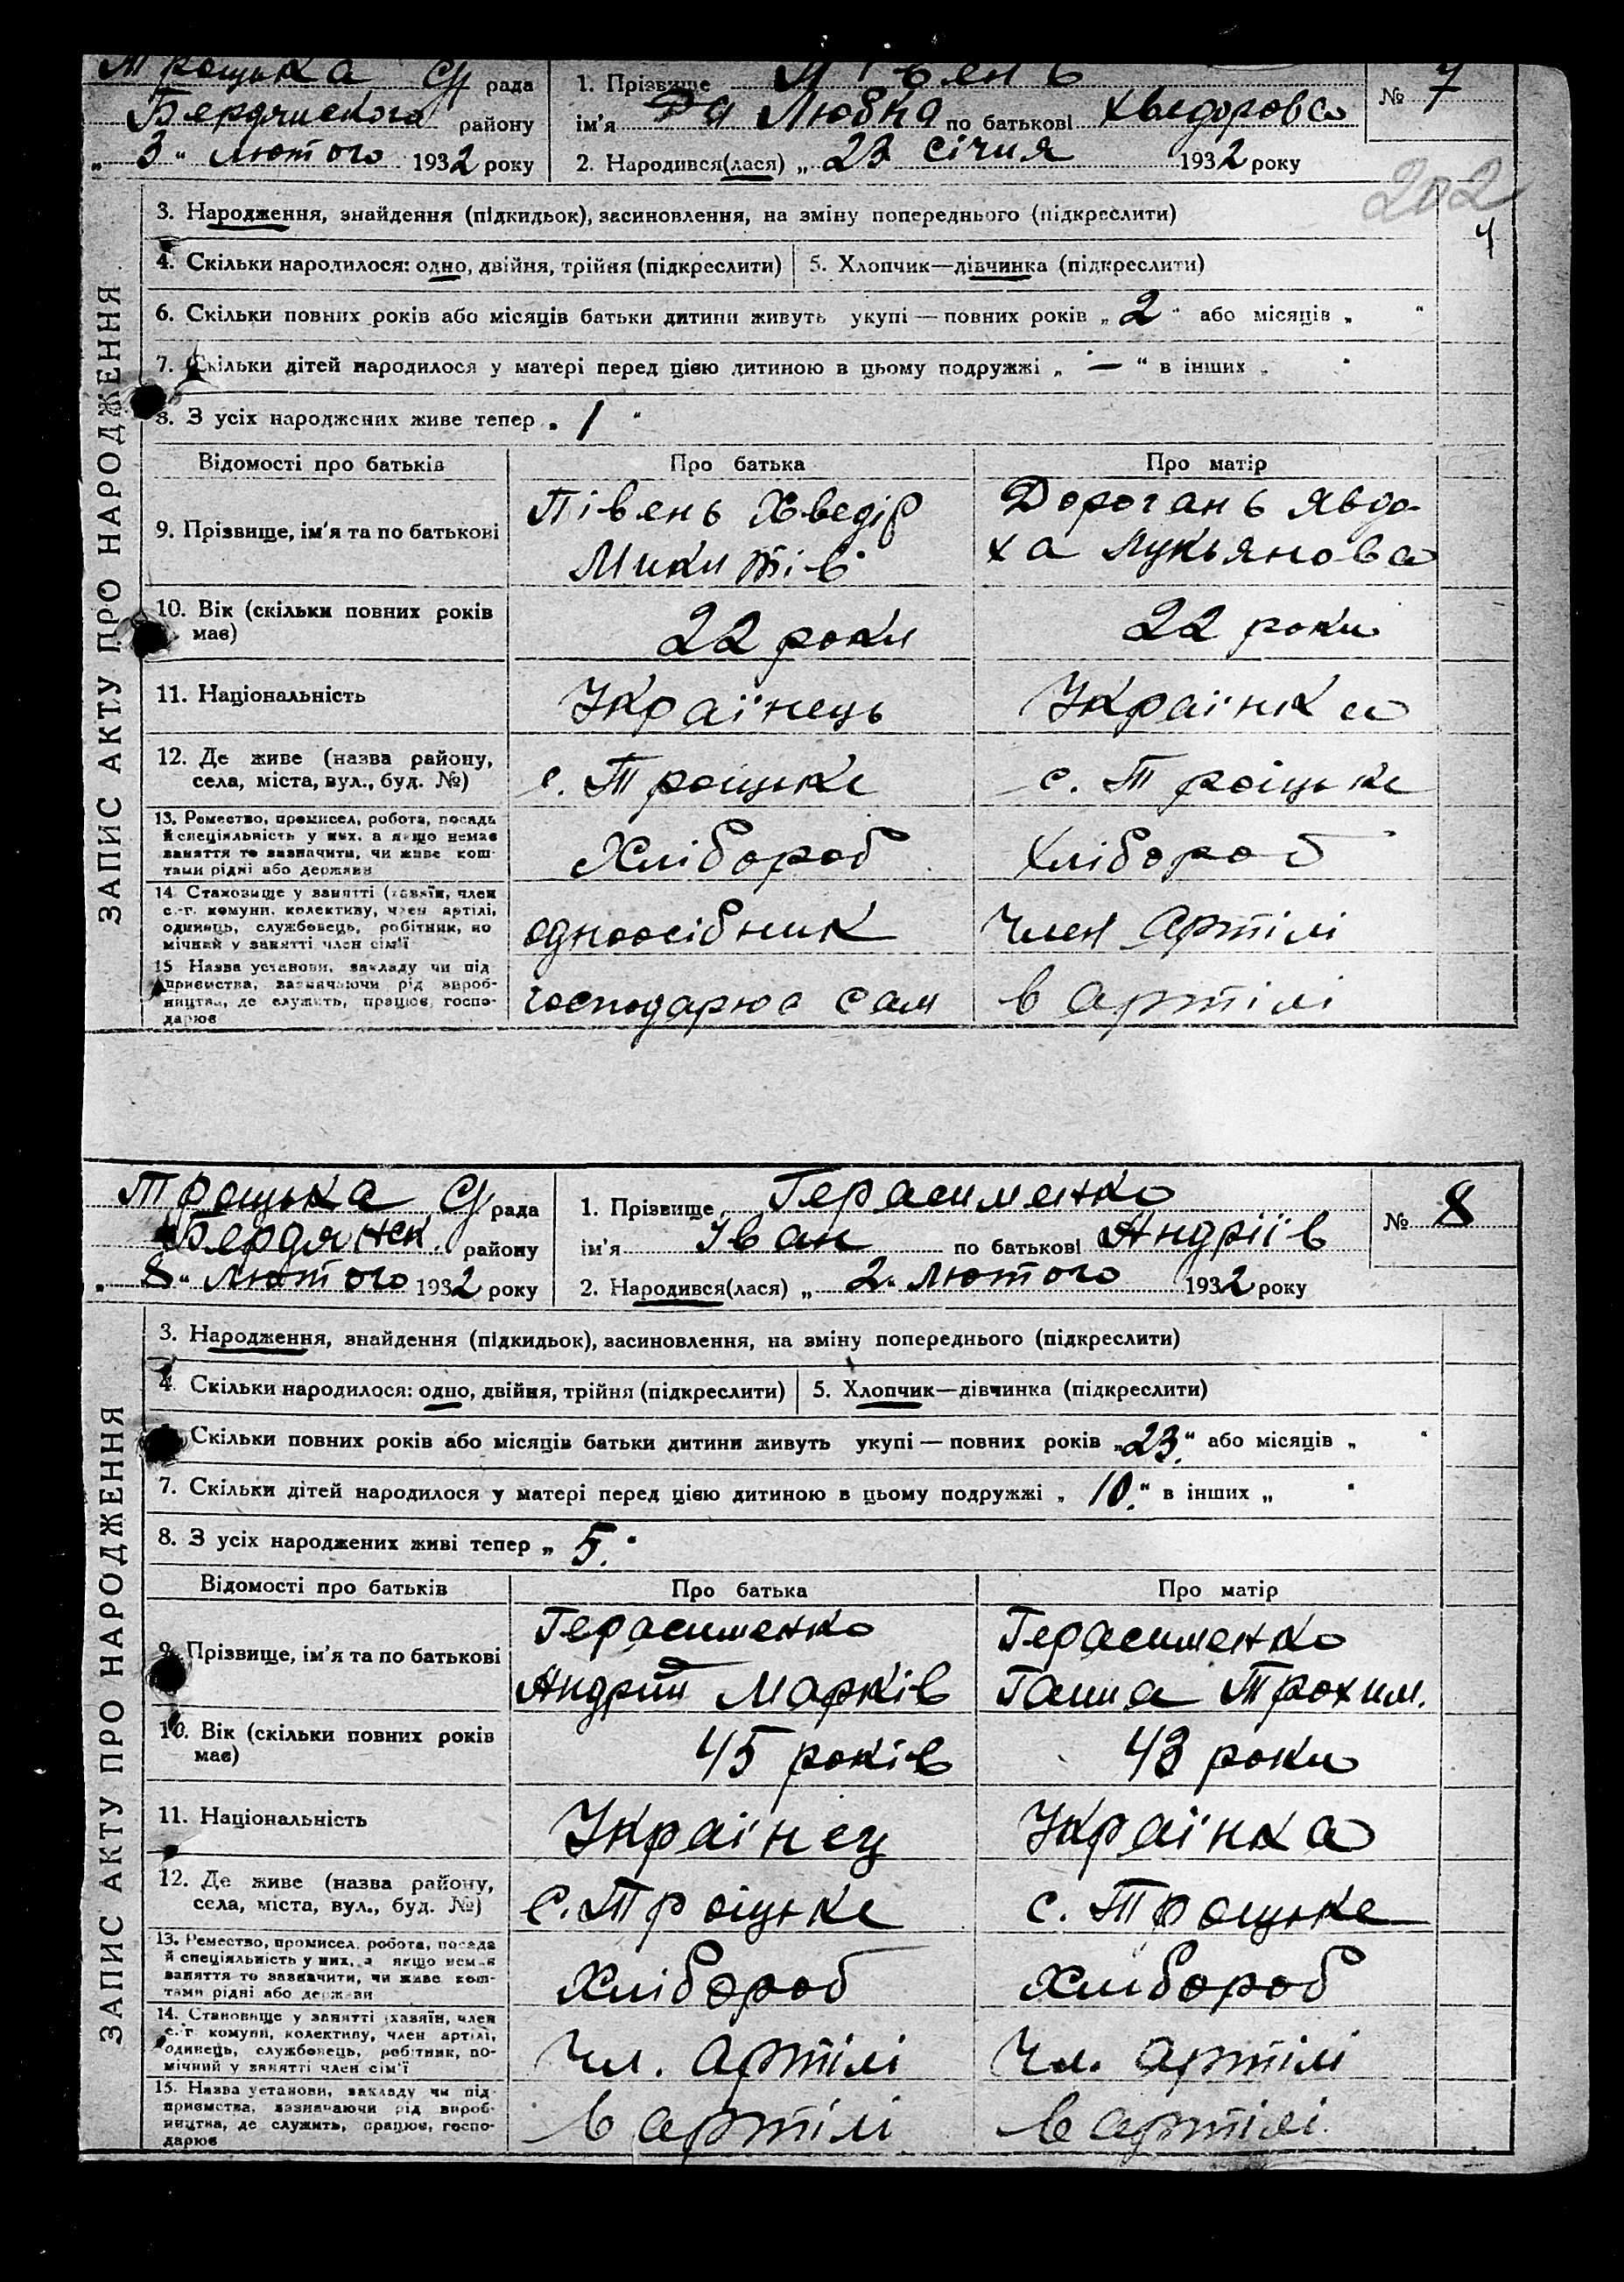 Троцька С/ рада
Бердянського району
„ 3 “ лютого 1932 року
1. Прізвище Півень
ім’я Любка по батькові Хведоровa
2. Народився(лася) „ 23 січня 1932 року
№ 7
202
4
ЗАПИС АКТУ ПРО НАРОДЖЕННЯ
3. Народження, знайдення (підкидьок), засиновлення, на зміну попереднього (підкреслити)
4. Скільки народилося: одно, двійня, трійня (підкреслити) 5. Хлопчик—дівчинка (підкреслити)
6. Скільки повних років або місяців батьки дитини живуть укупі — повних років „ 2 “ або місяців „ “
7. Скільки дітей народилося у матері перед цією дитиною в цьому подружжі „ — “ в інших „ “
8. З усіх народжених живе тепер „ 1 “
Відомості про батьків Про батька Про матір
9. Прізвище, ім’я та по батькові
Півень Хведір
Микитів
Дорогань Явдо-
ха Лукьянова
10. Вік (скільки повних років
має)
22 роки
22 роки
11. Національність
Українець
Українка
12. Де живе (назва району,
села, міста, вул., буд. №)
с. Троцьке
с. Троцьке
13. Ремество, промисел, робота, посада
й спеціяльність у них, а якщо немає
заняття то зазначити, чи живе кош-
тами рідні або держави
Хлібороб
Хлібороб
14 Становище у занятті (хазяїн, член
с.-г. комуни, колективу, член артілі,
одинець, службовець, робітник, по
мічний у занятті член сім’ї
одноосібник
Член артілі
15 Назва установи, закладу чи під
приємства, зазначаючи рід вироб-
ництва, де служить, працює, госпо-
дарює
господарює сам
в артілі
Троцька С/ рада
Бердянськ. району
„ 8 “ лютого 1932 року
1. Прізвище Герасименко
ім’я Іван по батькові Андріїв
2. Народився(лася) „ 2 “ лютого 1932 року
№ 8
ЗАПИС АКТУ ПРО НАРОДЖЕННЯ
3. Народження, знайдення (підкидьок), засиновлення, на зміну попереднього (підкреслити)
4. Скільки народилося: одно, двійня, трійня (підкреслити) 5. Хлопчик—дівчинка (підкреслити)
Скільки повних років або місяців батьки дитини живуть укупі — повних років „ 23. “ або місяців „ “
7. Скільки дітей народилося у матері перед цією дитиною в цьому подружжі „ 10. “ в інших „ “
8. З усіх народжених живі тепер „ 5. “
Відомості про батьків Про батька Про матір
9. Прізвище, ім’я та по батькові
Герасименко
Андрій Марків
Герасименко
Ганна Трохим.
10. Вік (скільки повних років
має)
45 років
43 роки
11. Національність
Українец
Українка
12. Де живе (назва району,
села, міста, вул., буд. №)
с. Троцьке
с. Троцьке
13. Ремество, промисел, робота, посада
й спеціяльність у них, а якщо немає
заняття то зазначити, чи живе кош-
тами рідні або держави
Хлібороб
Хлібороб
14. Становище у занятті (хазяїн, член
с.-г. комуни, колективу, член артілі,
одинець, службовець, робітник, по-
мічний у занятті член сім’ї
Чл. артілі
Чл. артілі
15. Назва установи, закладу чи під-
приємства, зазначаючи рід вироб-
ництва, де служить, працює, госпо-
дарює
в артілі
в артілі.